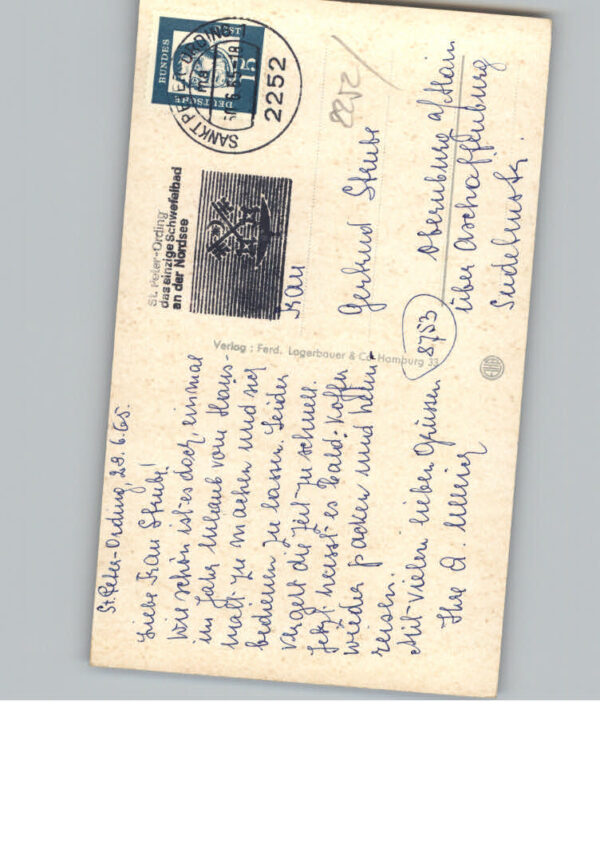 St. Peter-Ording, 28.6.65.
Liebe Frau Strube!
Wie schön ist es doch einmal
im Jahr Urlaub vom Haus-
halt zu machen und sich
bedienen zu lassen. Leider
vergeht die Zeit zu schnell.
Jetzt heisst es bald: Koffer
wieder packen und heim-
reisen.
Mit vielen lieben Grüssen
Ihre A.
St. Peter-Ording
das einzige Schwefelbad
an der Nordsee
DEUTSCHE
BUNDES
POST
15
SANKT PETER-ORDING
2252
2252
Verlag : Ferd. Lagerbauer & Co. Hamburg 33
Frau
Gertrud Strube
8753
Obernburg a/Main
über Aschaffenburg